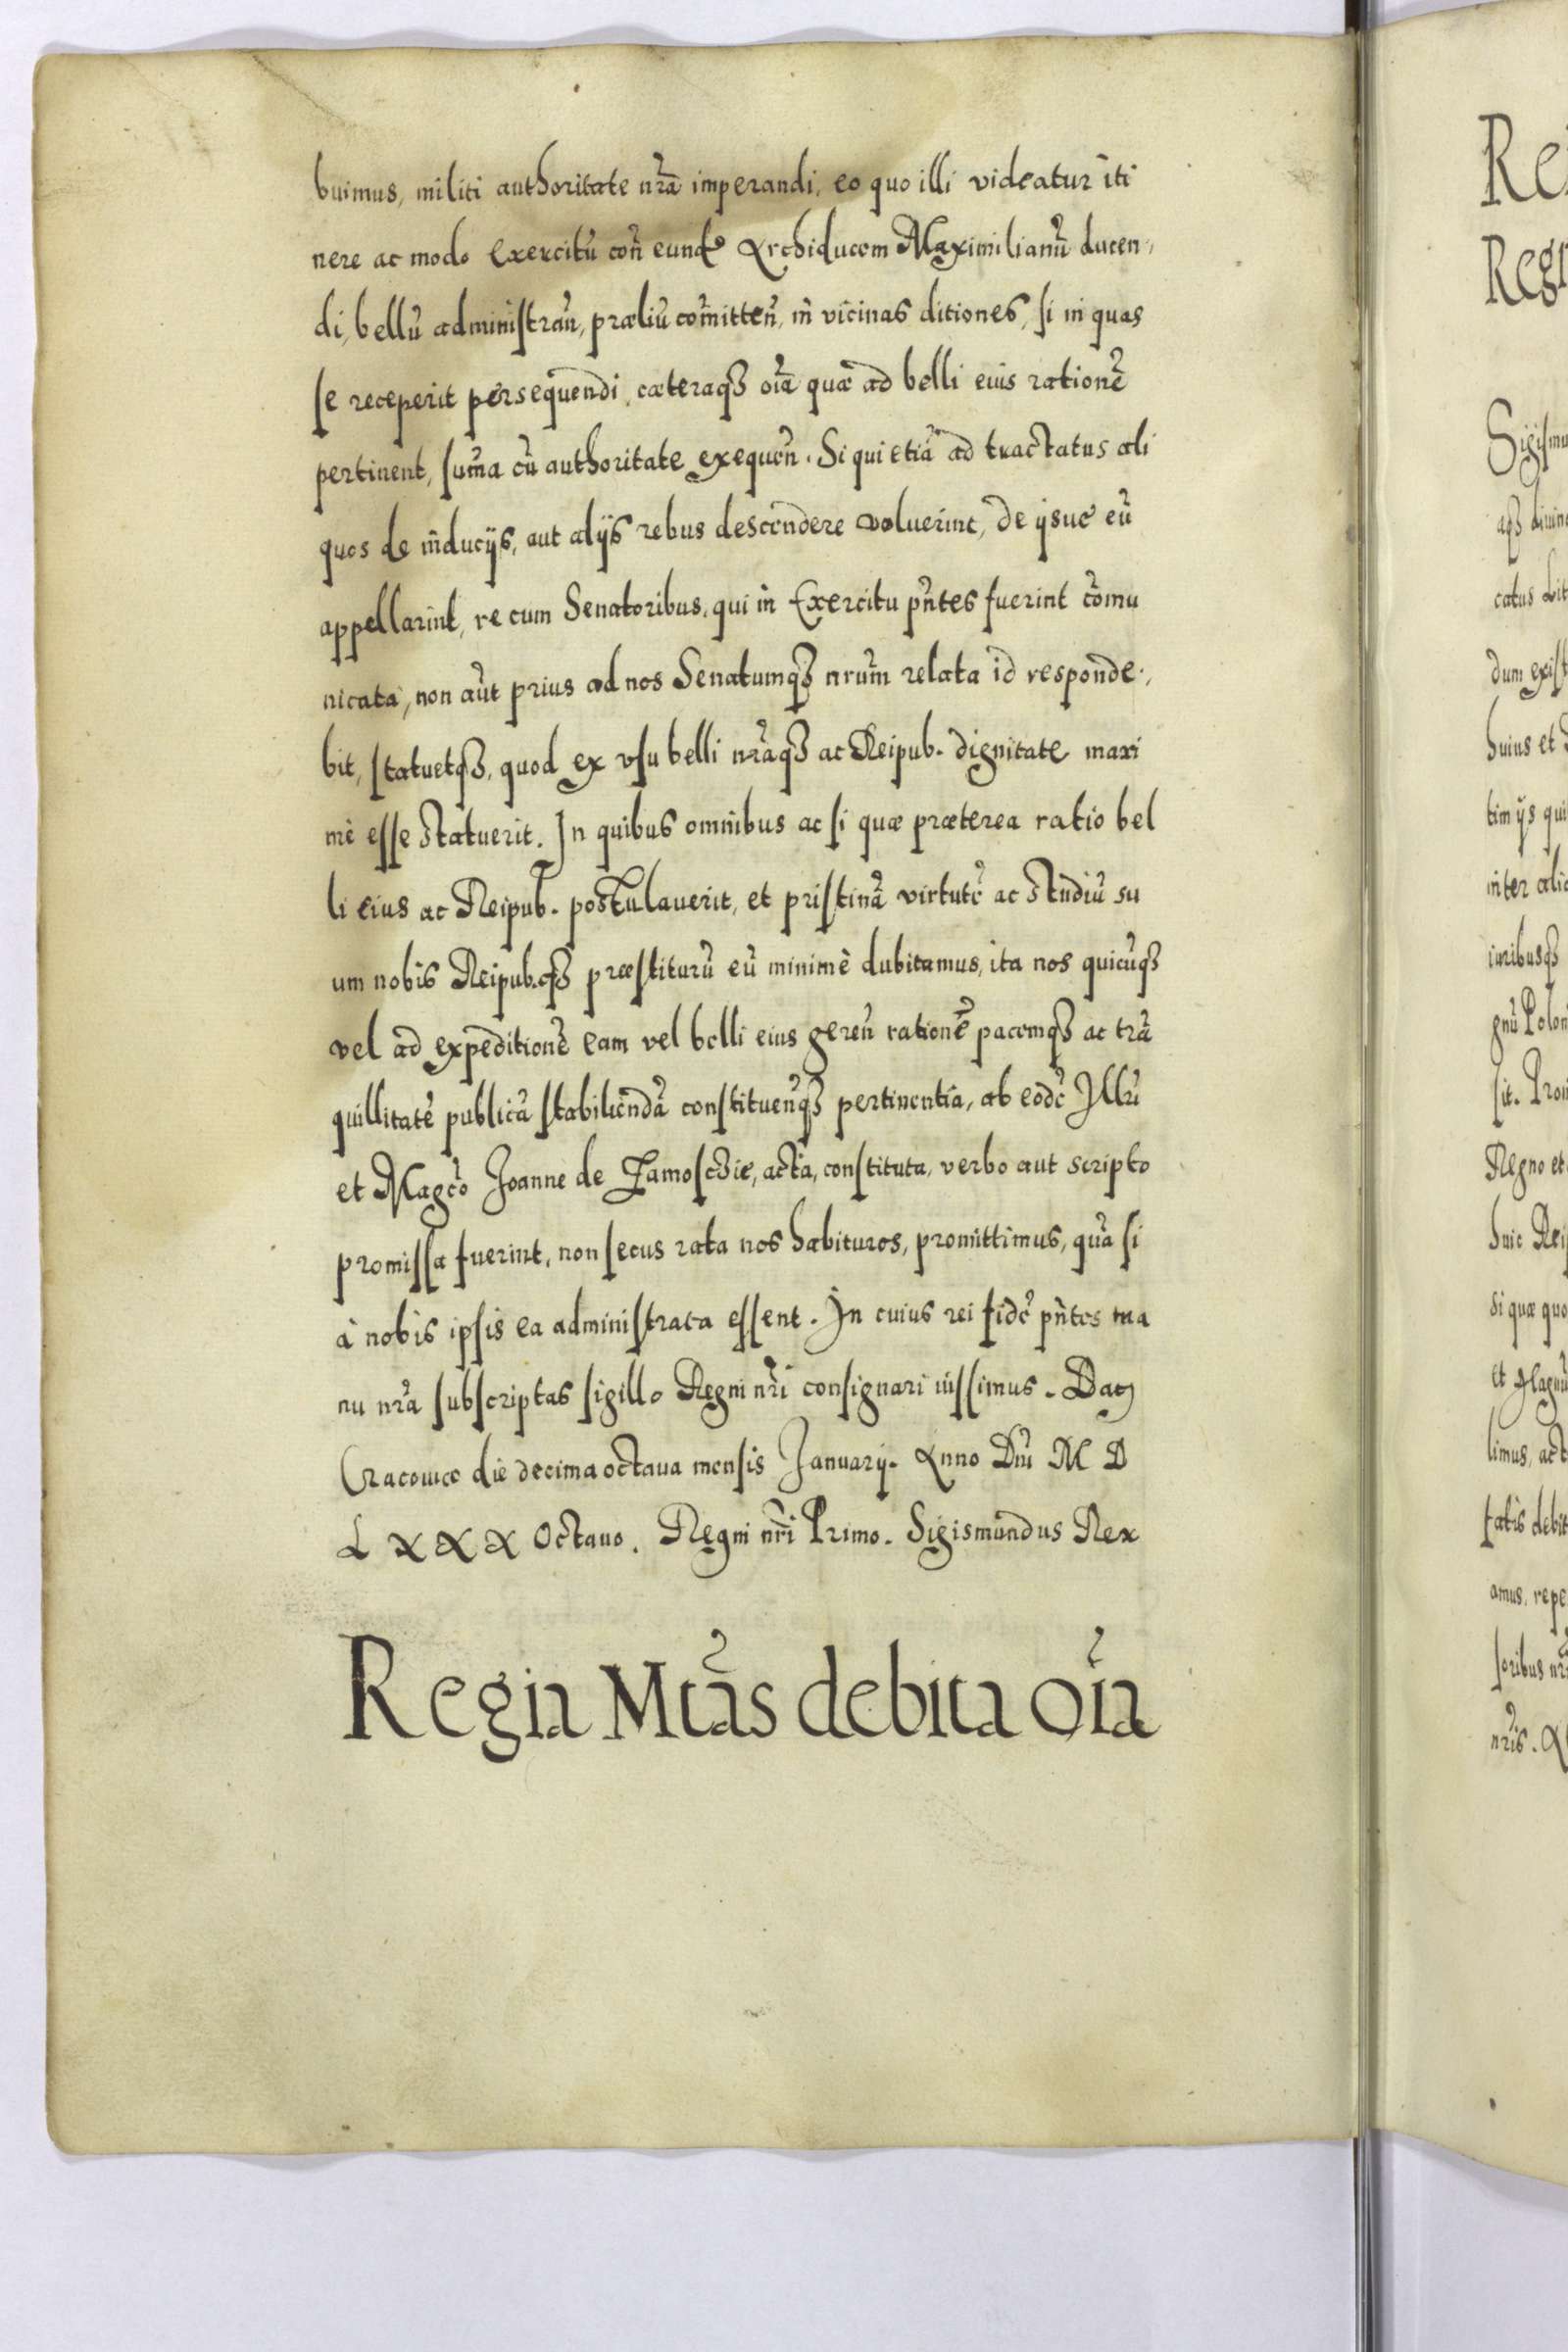 buimus, militi authoritate nr̃a imperandi, eo quo illi videatur iti
nere ac modo Exercitũ coñ eund̃ Archiducem Maximilianũ ducen,
di, bellũ administrañ, præliũ com̃itteñ, in vicinas ditiones, si in quas
se receperit persequendi, cæteraqꝫ oĩa quæ ad belli eius rationẽ
pertinent, sum̃a cũ authoritate exequeñ. Si qui etiã ad tractatus ali
quos de inducijs, aut alijs rebus descendere voluerint, de ijsue eũ
appellarint, re cum Senatoribus, qui in Exercitu pñtes fuerint com̃u
nicata, non aũt prius ad nos Senatumqꝫ nrũm relata id responde,
bit, statuetqꝫ, quod ex vsu belli nr̃aqꝫ ac Reipub. dignitate maxi
mè esse statuerit. In quibus omnibus ac si quæ præterea ratio bel
li eius ac Reipub. postulauerit, et pristinã virtutẽ ac studiũ su
um nobis Reipub.qꝫ præstiturũ eũ minimè dubitamus, ita nos quicũqꝫ
vel ad expeditionẽ eam vel belli eius gereñ rationẽ pacemqꝫ ac trã
quillitatẽ publicã stabiliendã constitueñqꝫ pertinentia, ab eodẽ Illri
et Magc̃o Joanne de Zamoschie, acta, constituta, verbo aut scripto
promissa fuerint, non secus rata nos habituros, promittimus, quã si
à nobis ipsis ea administrata essent. In cuius rei fidẽ pñtes ma
nu nr̃a subscriptas sigillo Regni nr̃i consignari iussimus. Datꝫ
Cracouiæ die decima octaua mensis Januarij. Anno Dñi M D
L X X X Octauo. Regni nr̃i Primo. Sigismundus Rex
Regia Mtãs debita oĩa